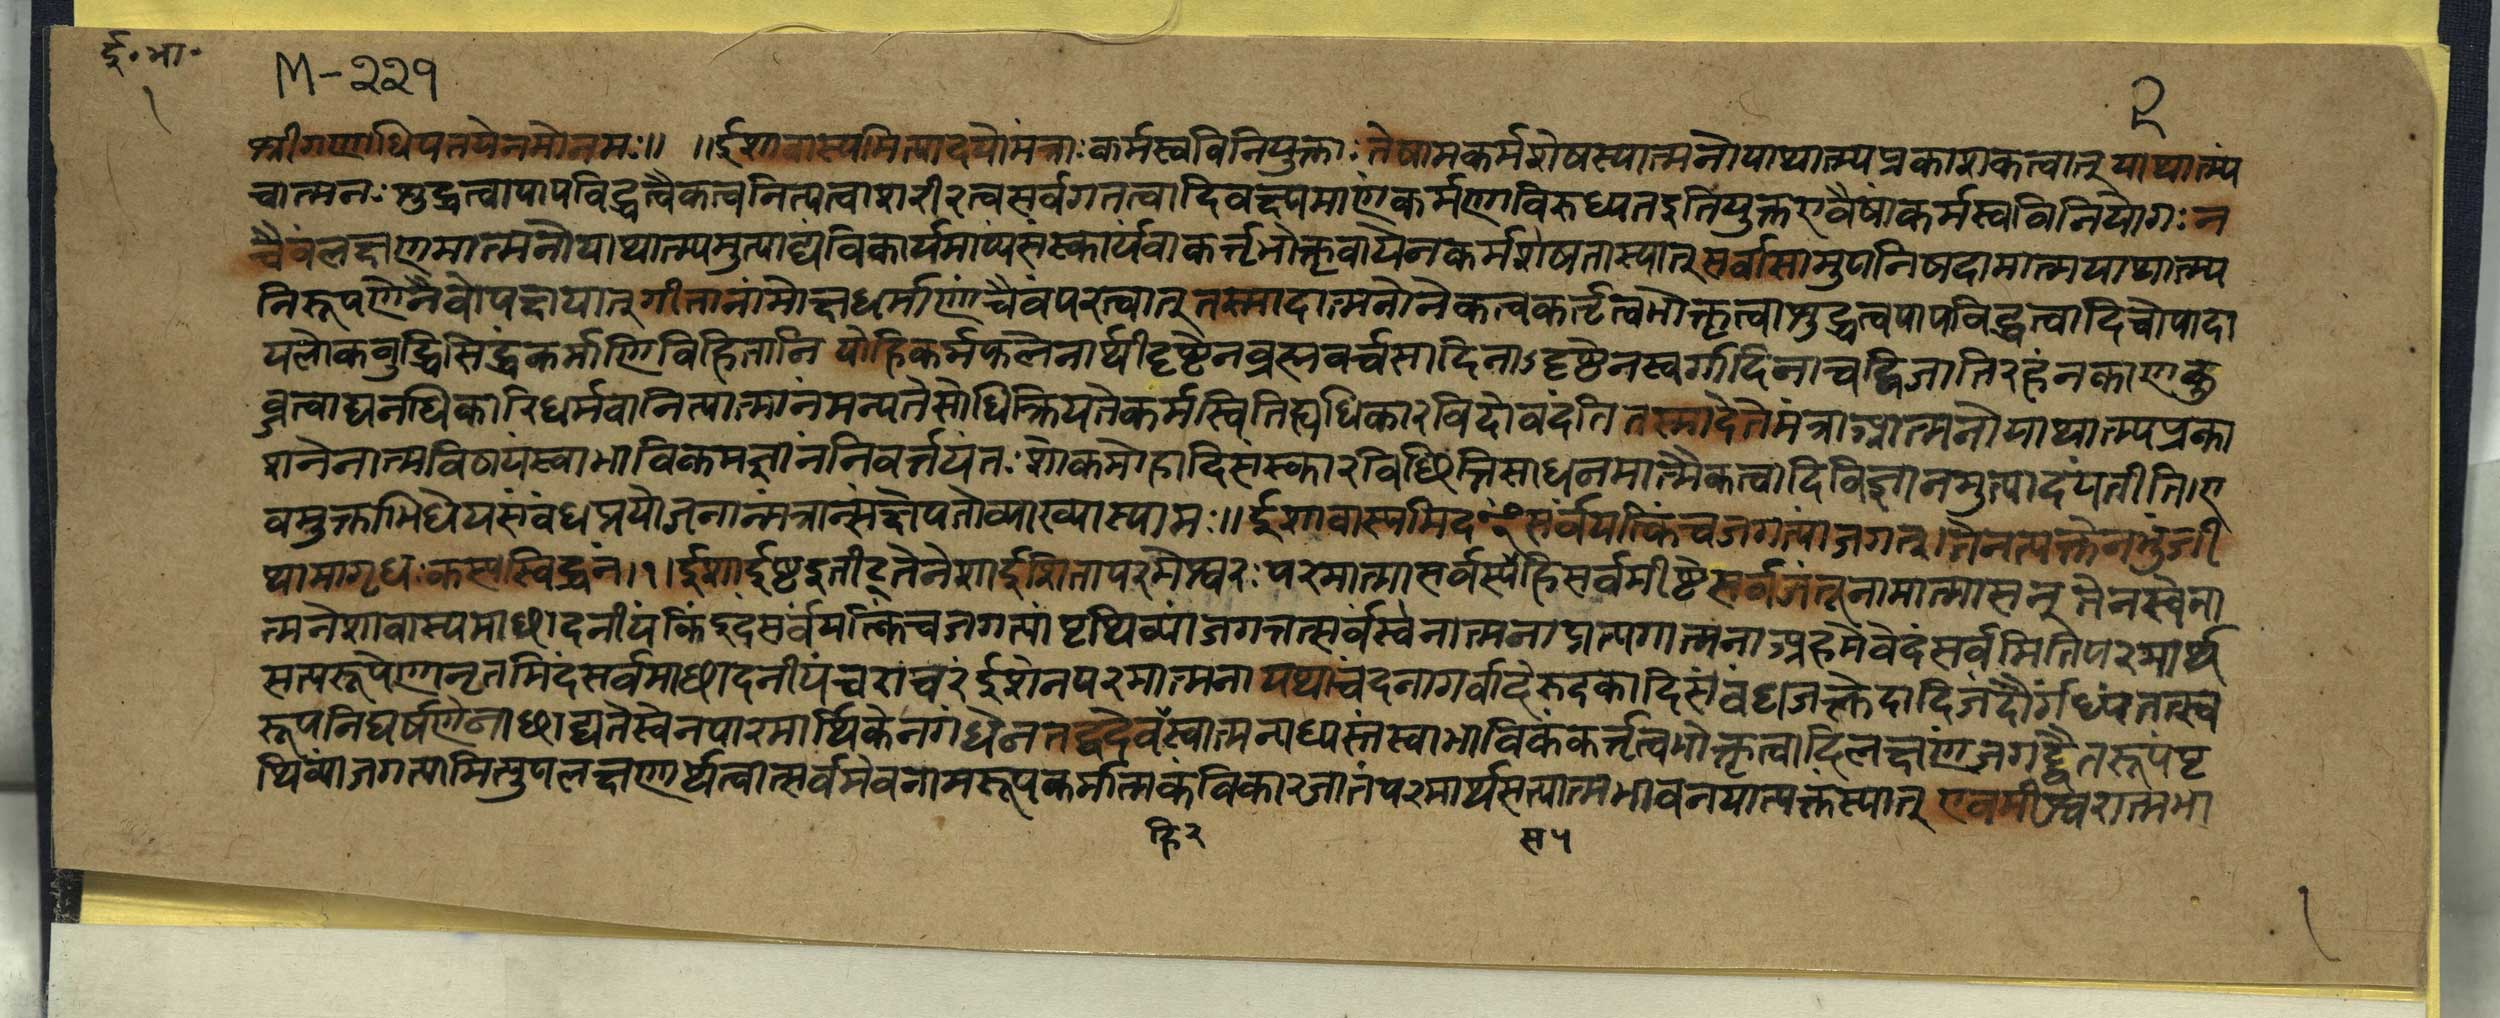 ई॰ भा॰
१
M-२२१
श्रीगणाधिपतयेनमोनमः॥ ॥ईशावास्यमित्यादयोमंत्राःकर्मस्वविनियुक्ताःतेषामकर्मशेषस्यात्मनोयाथात्म्यप्रकाशकत्वात् याथात्म्यं
चात्मनःशुद्धत्वापापविद्धत्वैकत्वनित्यत्वाशरीरत्वसर्वगतत्वादिवक्ष्यमाणंकर्मणाविरुध्यतइतियुक्तएवैषांकर्मस्वविनियोगःन
चैवंलक्षणमात्मनोयाथात्म्यमुत्पाद्यंविकार्यमाप्यंसंस्कार्यंवाकर्त्तृभोक्तृवायेनकर्मशेषतास्यात् सर्वासामुपनिषदामात्मयाथात्म्य
निरूपणेनैवोपक्षयात् गीतानांमोक्षधर्माणांचैवंपरत्वात् तस्मादात्मनोनेकत्वकर्त्तृत्वभोक्तृत्वाशुद्धत्वपापविद्धत्वादिचोपादा
यलोकबुद्धिसिद्धंकर्माणिविहितानि योहिकर्मफलेनार्थीदृष्टेनब्रह्मवर्चसादिनाऽदृष्टेनस्वर्गादिनाचद्विजातिरहंनकाणकु
ब्जत्वाद्यनधिकारिधर्मवानित्यात्मानंमन्यतेसोधिक्रियतेकर्मस्वितिह्यधिकारविदोवदंति तस्मादेतेमंत्राआत्मनोयाथात्म्यप्रका
शनेनात्मविषयंस्वाभाविकमज्ञानंनिवर्त्तयंतःशोकमोहादिसंस्कारविछित्तिसाधनमात्मैकत्वादिविज्ञानमुत्पादयंतीति।ए
वमुक्ताभिधेयसंबंधप्रयोजनान्मंत्रान्संक्षेपतोव्याख्यास्यामः॥ईशावास्यमिदꣳसर्वंयत्किंचजगत्यांजगत्।तेनत्यक्तेनभुंजी
थामागृधःकस्यस्विद्धनं।१।ईशाईष्टइतीट्तेनेशाईशितापरमेश्वरःपरमात्मासर्वस्यसहिसर्वमीष्टेसर्वजंतूनामात्मासन् तेनस्वेना
त्मनेशावास्यमाछादनीयंकिंइदंसर्वंयत्किंचजगत्यांपृथिव्यांजगत्तत्सर्वंस्वेनात्मनाप्रत्यगात्मनाअहमेवेदंसर्वमितिपरमार्थ
सत्यरूपेणानृतमिदंसर्वमाछादनीयंचराचरंईशेनपरमात्मना यथाचंदनागर्वादेरुदकादिसंबंधजक्लेदादिजंदौर्गंध्यंतत्स्व
रूपनिघर्षणेनाछाद्यतेस्वेनपारमार्थिकेनगंधेनतद्वदेवस्वात्मनाध्यस्तंस्वाभाविकंकर्त्तृत्वभोक्तृत्वादिलक्षणंजगद्द्वैतरूपंपृ
थिव्यांजगत्यामित्युपलक्षणार्थत्वात्सर्वमेवनामरूपकर्मात्मकंविकारजातंपरमार्थसत्यात्मभावनयात्यक्तंस्यात् एवमीश्वरात्मभा
हि२
स५
१